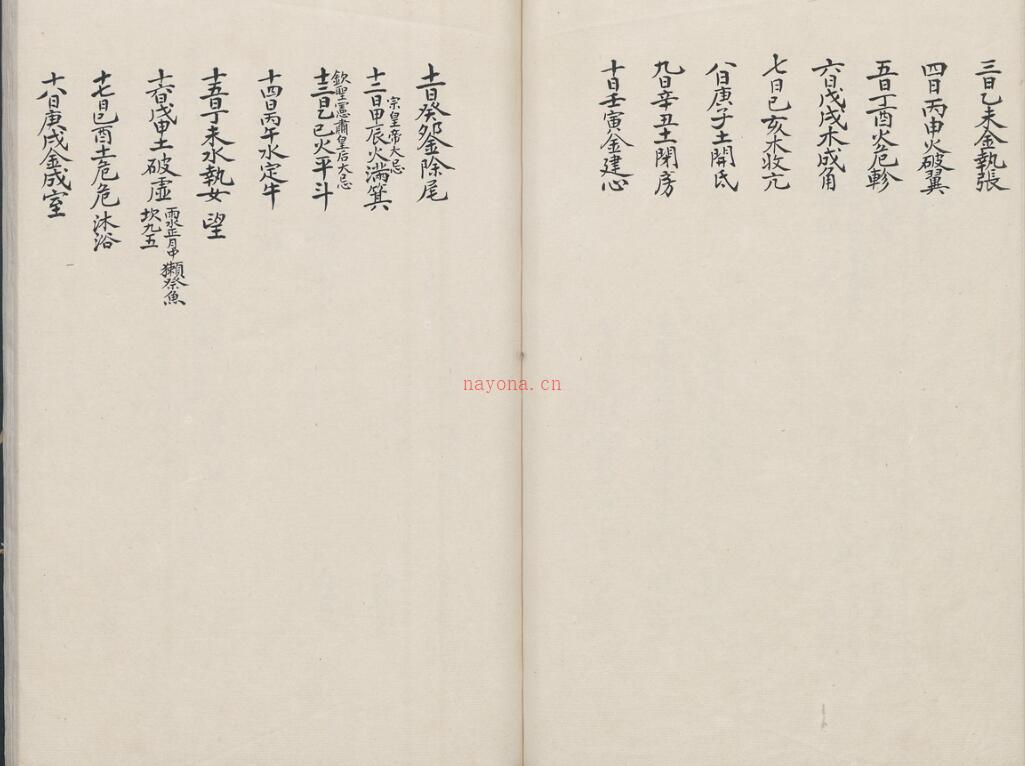 三日乙未金執張
四日丙申火破翼
五日丁酉火危軫
六日戊戌木成角
七日己亥木收亢
八日庚子土開氐
九日辛丑土閉房
十日壬寅金建心
十一日癸卯金除尾
十二日甲辰火滿箕
宗皇帝大忌
十三日乙巳火平斗
欽聖憲肅皇后大忌
十四日丙午水定牛
十五日丁未水執女 望
十六日戊申土破虛 雨水正月中 獺祭魚
坎九五
十七日己酉土危危 沐浴
十八日庚戌金成室
nayona.cn